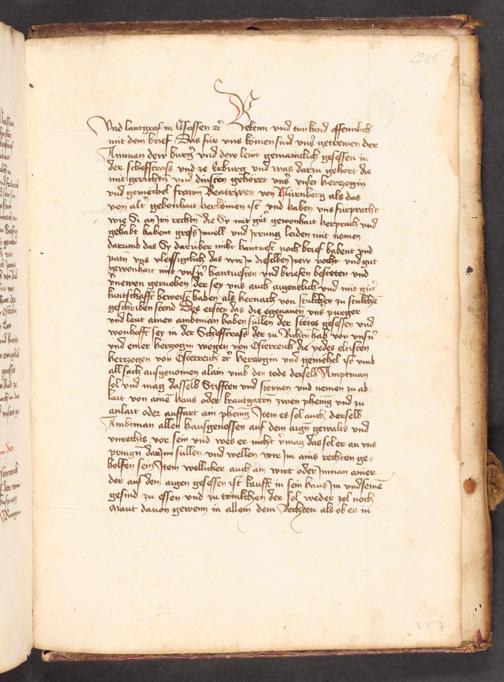 Vnd lantgraf in Elsassen etc. Bekenn vnd tun kund offennlich
mit dem brief Das für vns komen sind vns getrewen der
Amman der burger vnd der lewt gemainclich gesessen in
der Schefstrass vnd ze Erdpurg vnd was darzu gehort die
mit gerichten vnd diensten gehorent vns vnser herczogin
und gemehel frawn Beatrixen von Nürnberg als das
von alter gewonhait herkomen ist vnd haben vns fürpracht
wie Si an irn rechten die Sy mit gut gewonhait herpracht und
gehabt habent gross inuell und irrung leiden mit nomen
darumb das Sy darüber nicht hantuest noch brief habent und
patn vns vleissiglich das wir in dieselben irew recht und gut
gewonhait mit vnsern hantuesten vnd briefen besteten und
vnewen geruchten der sey vns auch aigentlich und mit gut
kuntschafft beweist haben als hernach von stukchen zu stukchen
geschriben stend Des ersten das die egenanten vns purger
und lewt ainen ambtman haben sullen der stetes gesessen und
wonhafft sey in der Scheffstrass der zu richten hab von vnsern
und einer herzogin wegen von Osterreich die yedes eltisten
herczogen von Osterreich etc. herczogin und gemehel ist umb
all sach ausgenomen alain umb den tode derselb Amptman
sol und mag dasselb Stifften und storen und nemen zu ab
lait von aine haus oder krautgarten zwen phening und zu
anlait oder auffart ain phening Item es sol auch derselb
Ambtman allen hausgenossen auf dem aigen gewalts und
unrechts vor sein und wes er nicht vermag das sol er an uns
pringen darinn sullen und wellen wir im ains rechten ge-
holfen sein Item welicher auch ain wirt oder Inman ainer
der auf dem aigen gesessen ist kaufft in sein haus im und seinem
gesind zu essen und zu trinkchen der sol weder zol noch
maut davon geben in allem dem Rechten als ob er in